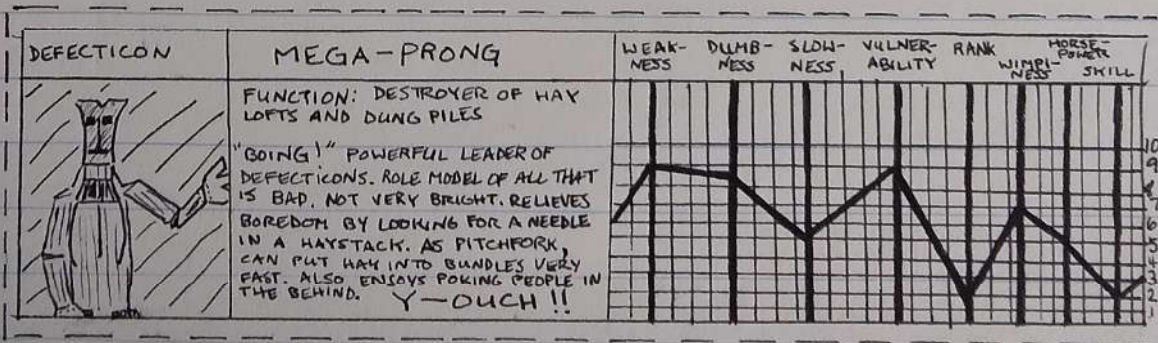 DEFECTICON
MEGA-PRONG
FUNCTION: DESTROYER OF HAY
LOFTS AND DUNG PILES
"BOING!" POWERFUL LEADER OF
DEFECTICONS. ROLE MODEL OF ALL THAT
IS BAD. NOT VERY BRIGHT. RELIEVES
BOREDOM BY LOOKING FOR A NEEDLE
IN A HAYSTACK. AS PITCHFORK,
CAN PUT HAY INTO BUNDLES VERY
FAST. ALSO ENJOYS POKING PEOPLE IN
THE BEHIND. Y-OUCH!!
WEAK-
NESS
DUMB-
NESS
SLOW-
NESS
VULNER-
ABILITY
RANK
WIMPI-
NESS
HORSE-
POWER
SKILL
10
9
8
7
6
5
4
3
2
1